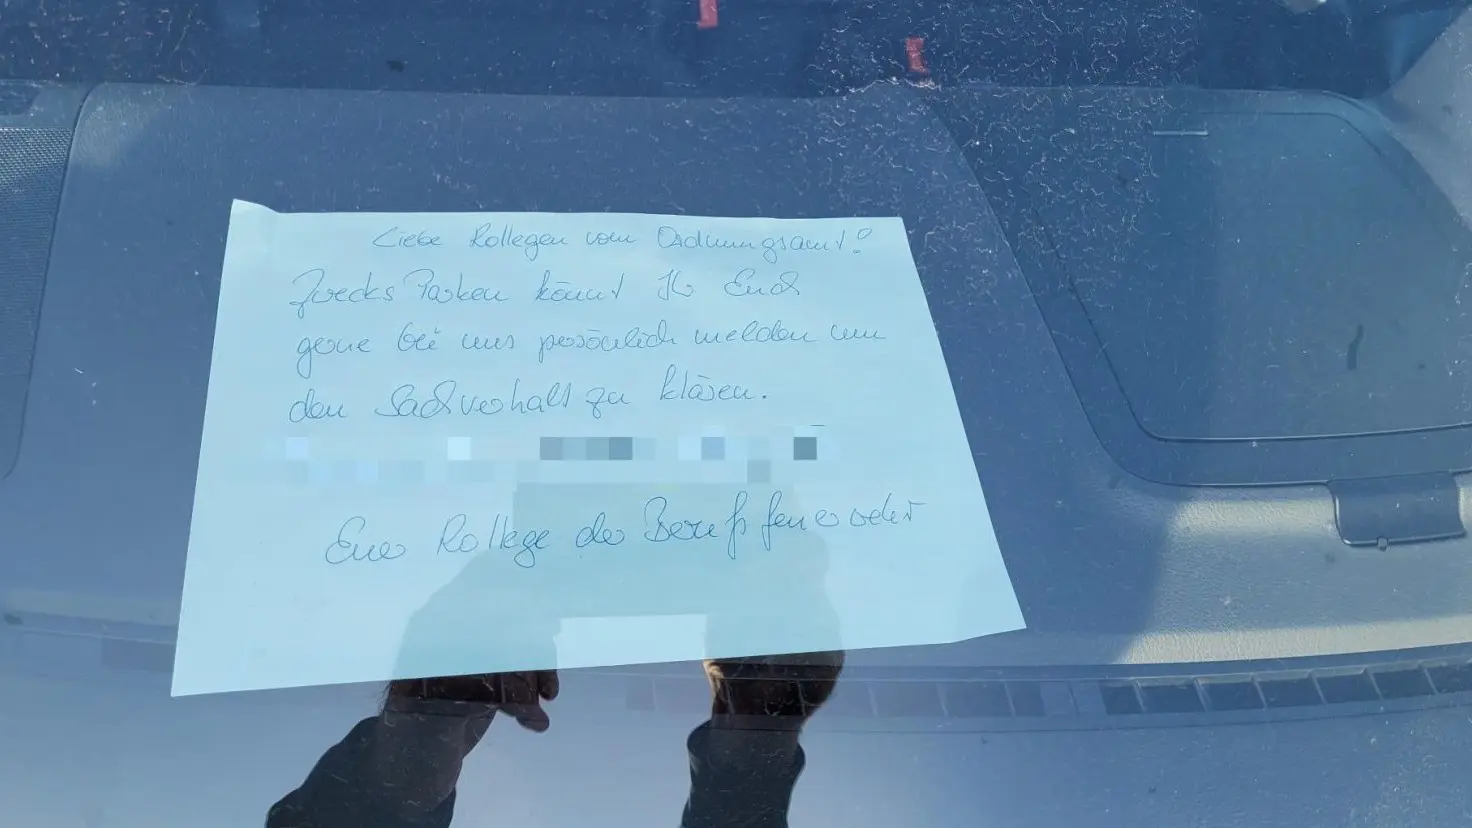 Liebe Kollegen vom Ordnungsamt!
Zwecks Parken könnt Ihr Euch
gerne bei uns persönlich melden um
den Sachverhalt zu klären.
Euer Kollege der Berufsfeuerwehr